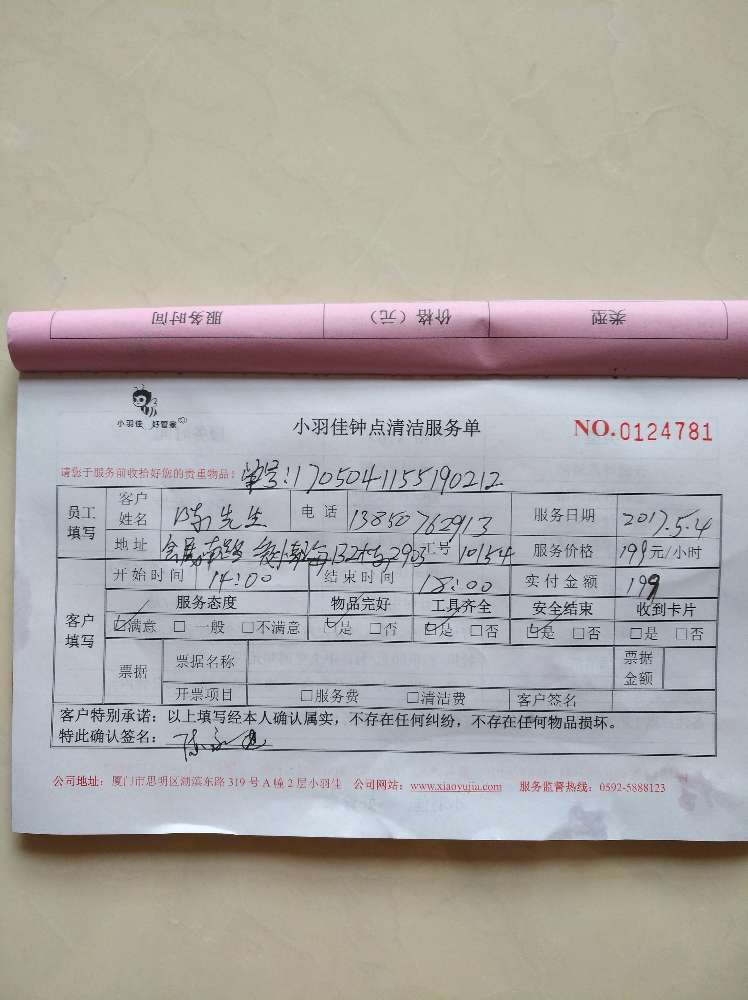 服务时间 价格（元） 类型
小羽佳 好管家
小羽佳钟点清洁服务单
NO.0124781
请您于服务前收拾好您的贵重物品：单号：1705041155190212
员工填写 客户姓名 陈先生 电话 13850762913 服务日期 2017.5.4
地址 会展南路 132 2903 工号 10154 服务价格 199元/小时
客户填写 开始时间 14:00 结束时间 18:00 实付金额 199
服务态度 物品完好 工具齐全 安全结束 收到卡片
☑满意 □一般 □不满意 ☑是 □否 ☑是 □否 ☑是 □否 □是 □否
票据 票据名称 票据金额
开票项目 □服务费 □清洁费 客户签名
客户特别承诺：以上填写经本人确认属实，不存在任何纠纷，不存在任何物品损坏。
特此确认签名：陈
公司地址：厦门市思明区湖滨东路 319 号 A 幢 2 层小羽佳 公司网站：www.xiaoyujia.com 服务监督热线：0592-5888123